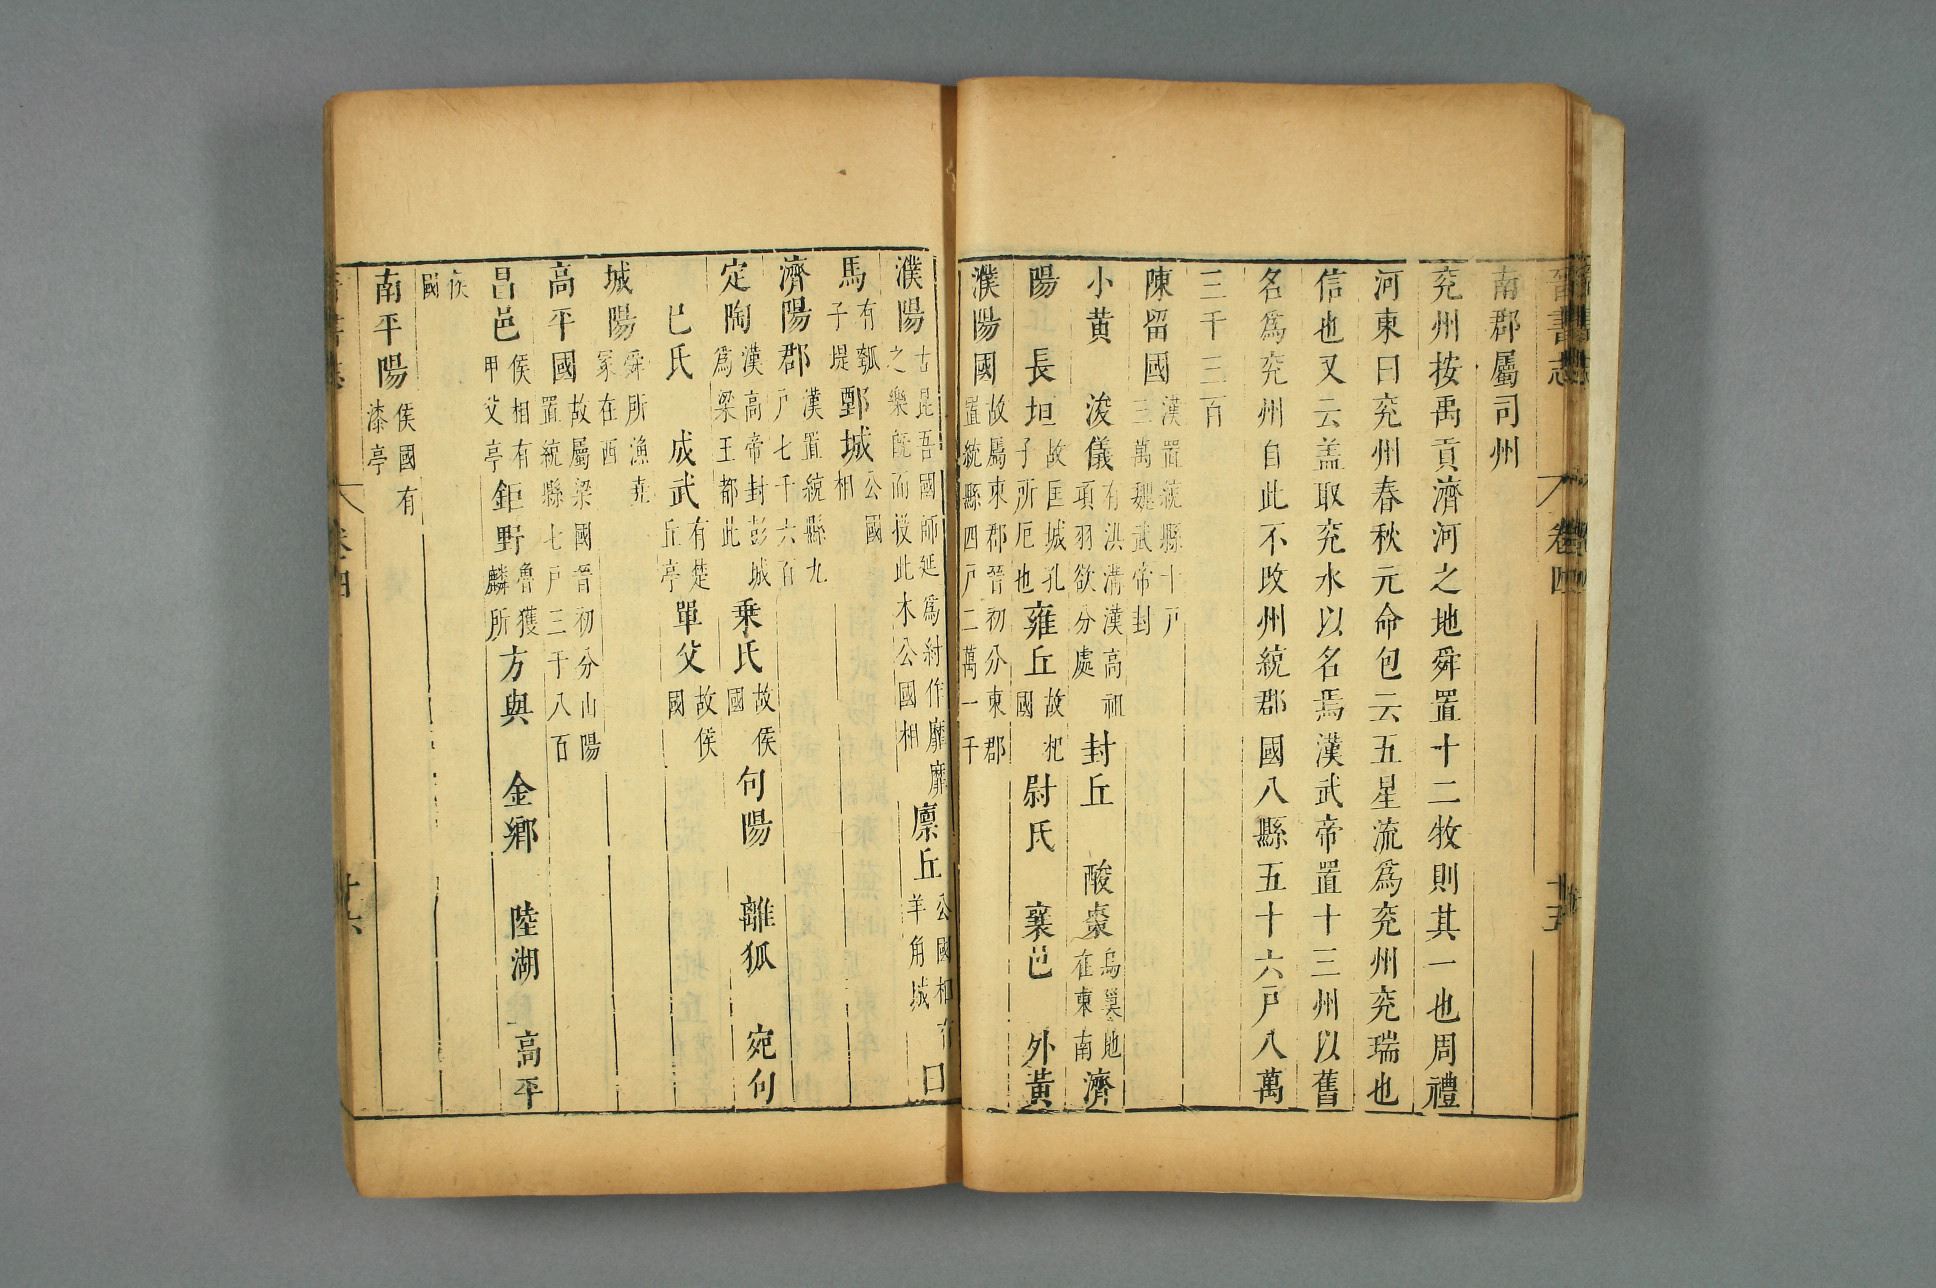 晉書志 卷四 十五
南郡屬司州
兖州按禹貢濟河之地舜置十二牧則其一也周禮
河東曰兖州春秋元命包云五星流爲兖州兖瑞也
信也又云盖取兖水以名焉漢武帝置十三州以舊
名爲兖州自此不改州統郡國八縣五十六戸八萬
三千三百
陳留國漢置統縣十戸三萬魏武帝封
小黄 浚儀有洪溝漢高祖項羽欲分處 封丘 酸棗烏巢地在東南 濟
陽 長垣故匡城孔子所厄也 雍丘故杞國 尉氏 襄邑 外黄
濮陽國故屬東郡晉初分東郡置統縣四戸二萬一千
濮陽古昆吾國師延爲紂作靡靡之樂旣而投此水公國相 廪丘公國相有羊角城 口
馬有瓠子堤 鄄城公國相
濟陽郡漢置統縣九戸七千六百
定陶漢高帝封彭城爲梁王都此 乗氏故侯國 句陽 離狐 宛句
巳氏 成武有楚丘亭 單父故侯國
城陽舜所漁堯冢在西
高平國故屬梁國晉初分山陽置統縣七戸三千八百
昌邑侯相有甲父亭 鉅野魯獲麟所 方與 金鄉 陸湖 高平
侯國
南平陽侯國有漆亭
卷四 十六